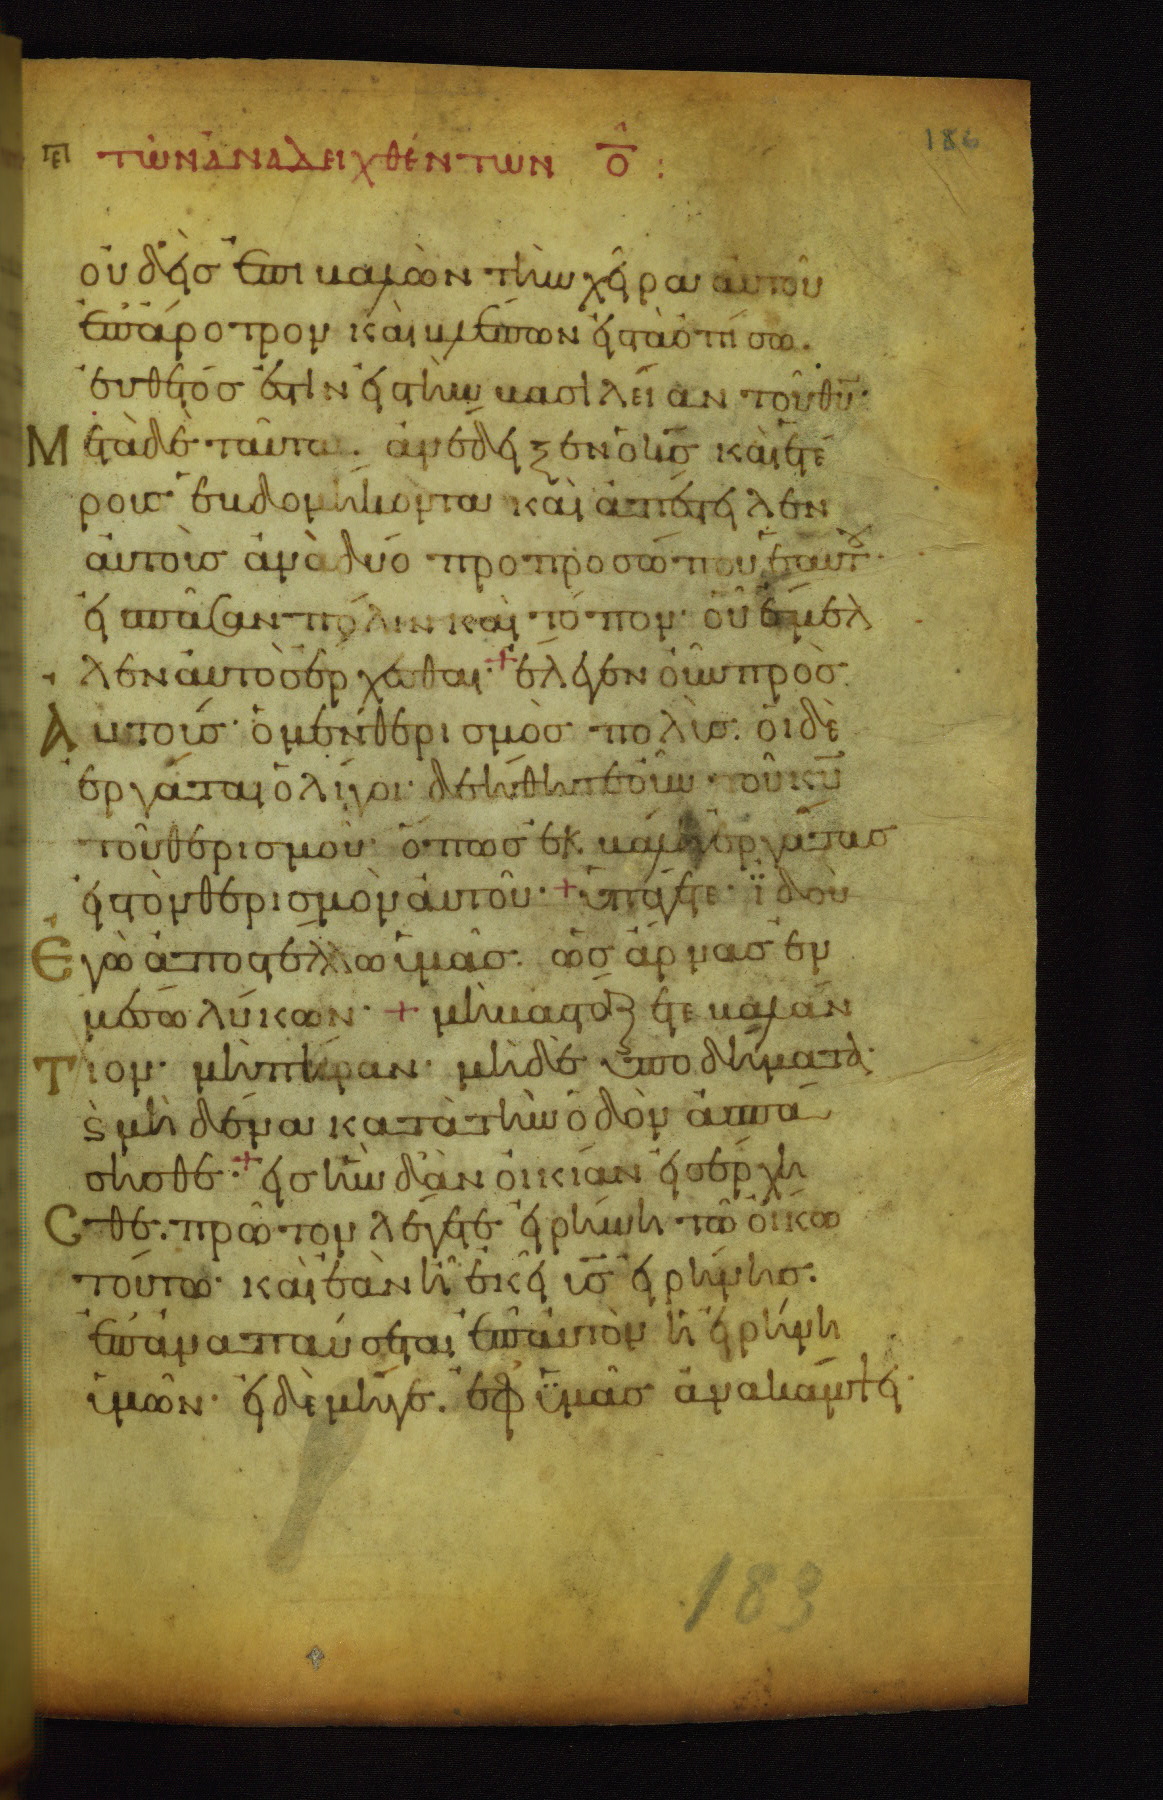 πε τῶν ἀναδειχθέντων ὁ̅ :
186
οὐδεὶς ἐπιβαλὼν τὴν χεῖρα αὐτοῦ
ἐπ' ἄροτρον καὶ βλέπων εἰς τὰ ὀπίσω.
εὔθετός ἐστιν εἰς τὴν βασιλείαν τοῦ θυ·
Μετὰ δὲ ταῦτα. ἀνέδειξεν ὁ ις καὶ ἑτέ
ρους ἑβδομήκοντα καὶ ἀπέστειλεν
αὐτοὺς ἀνὰ δύο προ προσώπου ἑαυτοῦ·
εἰς πᾶσαν πόλιν καὶ τόπον· οὗ ἔμελ
λεν αὐτὸς ἔρχεσθαι· + ἔλεγεν οὖν πρὸς
Αὐτούς· ὁ μὲν θερισμὸς πολύς· οἱ δὲ
ἐργάται ὀλίγοι· δεήθητε οὖν τοῦ κυ
τοῦ θερισμοῦ· ὅπως ἐκβάλῃ ἐργάτας
εἰς τὸν θερισμὸν αὐτοῦ· + ὑπάγετε· ἰδοὺ
Ἐγὼ ἀποστέλλω ὑμᾶς· ὡς ἄρνας ἐν
μέσω λύκων· + μὴ βαστάζετε βαλάν
Τιον· μὴ πήραν· μηδὲ ὑποδήματα·
ϛ μηδένα κατὰ τὴν ὁδὸν ἀσπά
σησθε· + εἰς ἣν δ' ἂν οἰκίαν εἰσέρχη
Σθε. πρῶτον λέγετε εἰρήνη τῶ οἴκω
τούτω· καὶ ἐὰν ἦ ἐκεῖ υς εἰρήνης.
ἐπαναπαύσεται ἐπ' αὐτὸν ἡ εἰρήνη
ὑμῶν· εἰ δὲ μήγε. ἐφ' ὑμᾶς ἀνακάμψει·
183